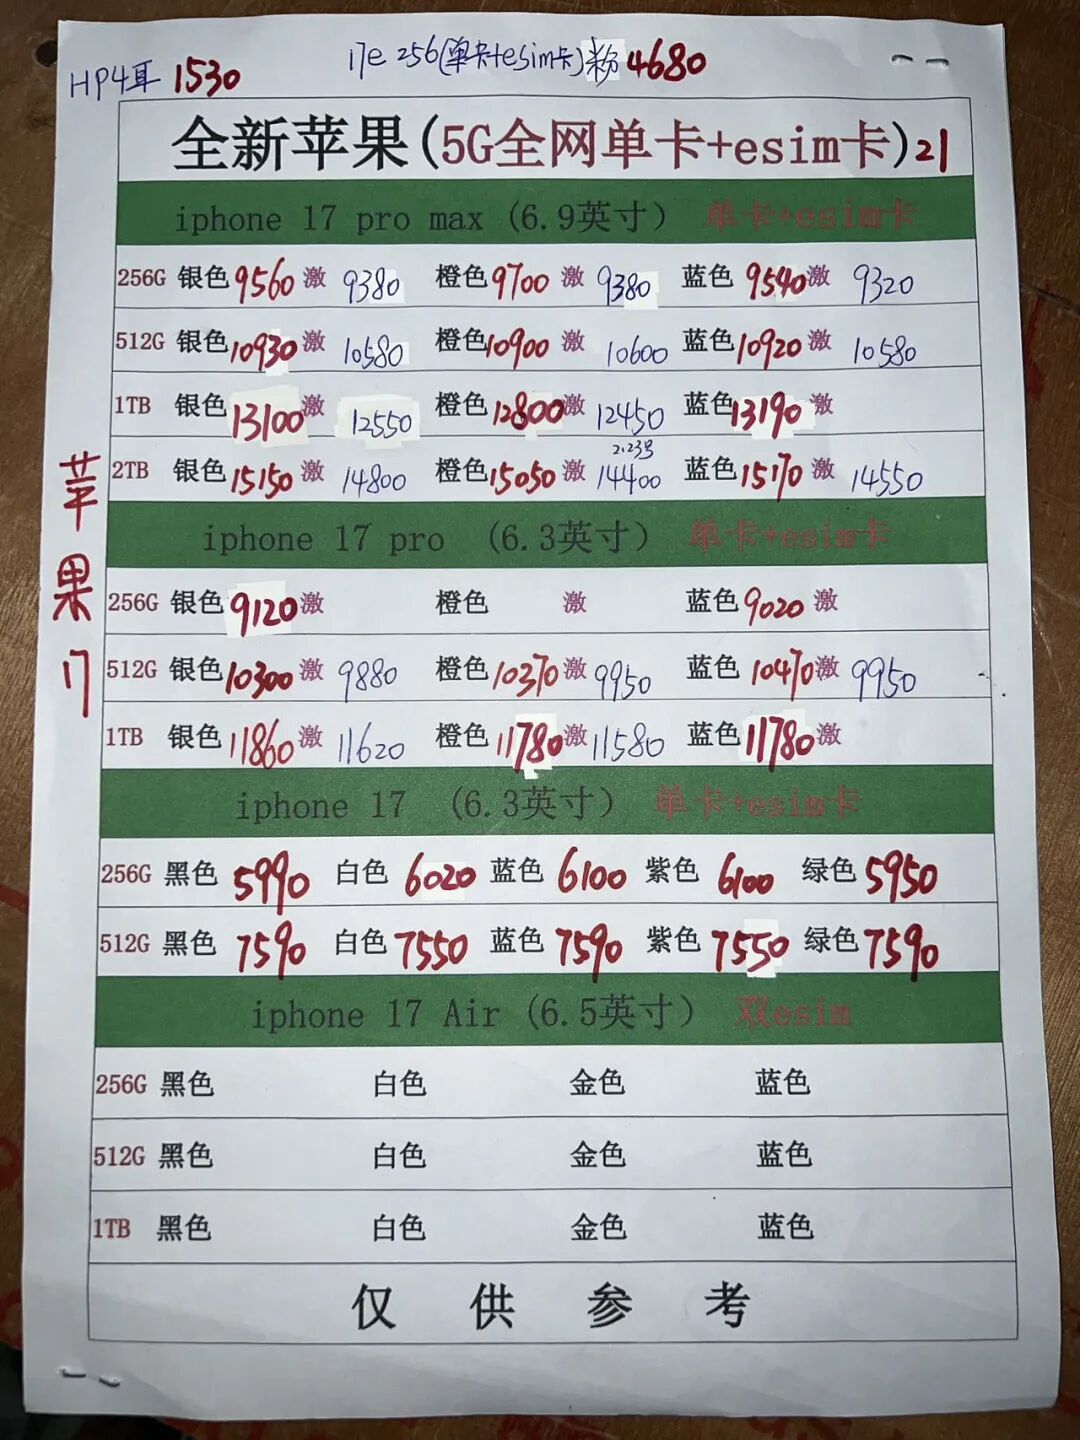 HP4耳 1530 17e 256(单卡+esim卡)粉 4680
全新苹果(5G全网单卡+esim卡)21
iphone 17 pro max (6.9英寸) 单卡+esim卡
256G 银色 9560 激 9380 橙色 9700 激 9380 蓝色 9540 激 9320
512G 银色 10930 激 10580 橙色 10900 激 10600 蓝色 10920 激 10580
1TB 银色 13100 激 12550 橙色 12800 激 12450 蓝色 13190 激
2.23号
2TB 银色 15150 激 14800 橙色 15050 激 14400 蓝色 15170 激 14550
苹果17
iphone 17 pro (6.3英寸) 单卡+esim卡
256G 银色 9120 激 橙色 激 蓝色 9020 激
512G 银色 10300 激 9880 橙色 10370 激 9950 蓝色 10470 激 9950
1TB 银色 11860 激 11620 橙色 11780 激 11580 蓝色 11780 激
iphone 17 (6.3英寸) 单卡+esim卡
256G 黑色 5990 白色 6020 蓝色 6100 紫色 6100 绿色 5950
512G 黑色 7590 白色 7550 蓝色 7590 紫色 7550 绿色 7590
iphone 17 Air (6.5英寸) 双esim
256G 黑色 白色 金色 蓝色
512G 黑色 白色 金色 蓝色
1TB 黑色 白色 金色 蓝色
仅供参考